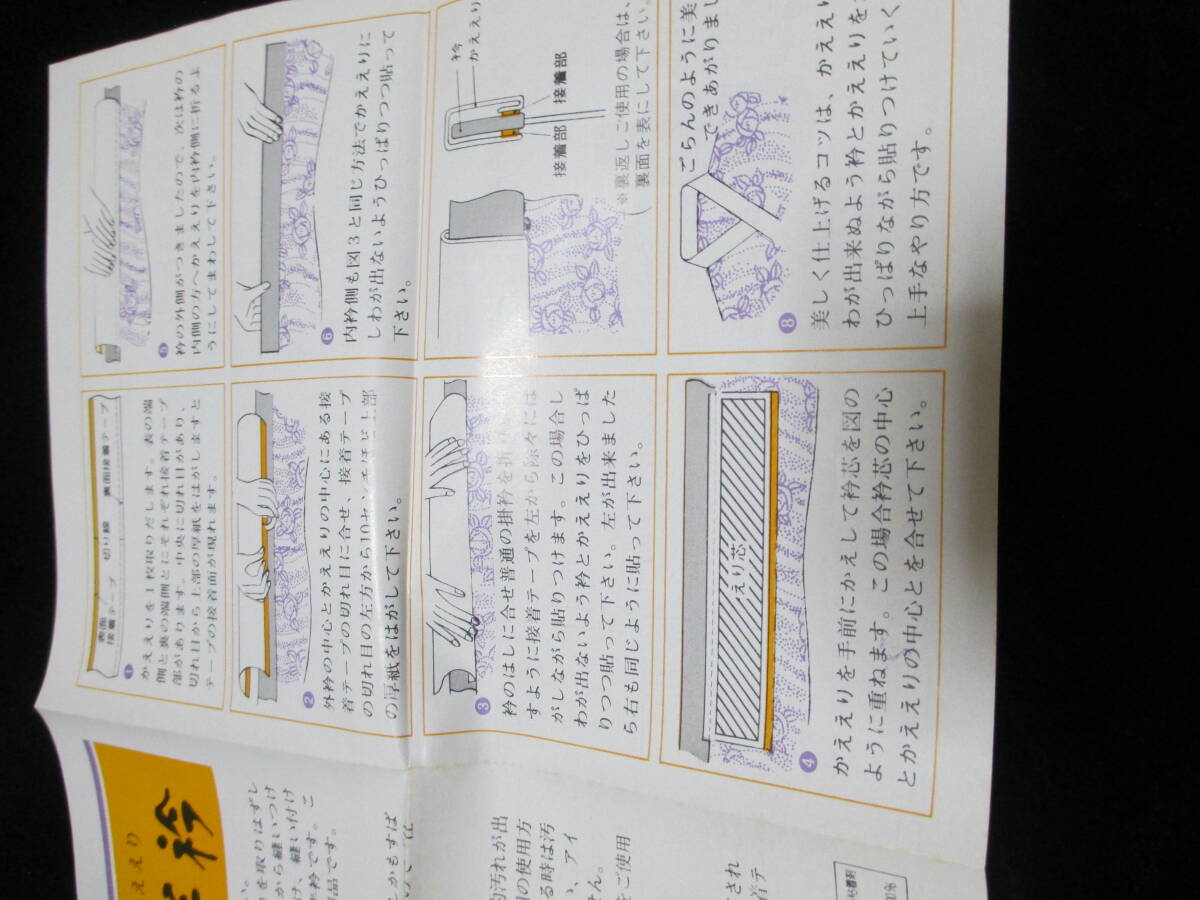 表面
接着テープ
切り線
裏面接着テープ
1
かええりを1枚取りだします。表の端
側と裏の端側とにそれぞれ接着テープ
部があります。中央に切れ目があり、
切れ目から上部の厚紙をはがしますと
テープの接着面が現れます。
2
外衿の中心とかええりの中心にある接
着テープの切れ目に合せ、接着テープ
の切れ目の左方から10センチほど上部
の厚紙をはがして下さい。
3
衿のはしに合せ普通の掛衿を折
すように接着テープを左から除々には
がしながら貼りつけます。この場合し
わが出ないよう衿とかええりをひっぱ
りつつ貼って下さい。左が出来ました
ら右も同じように貼って下さい。
えり芯
4
かええりを手前にかえして衿芯を図の
ように重ねます。この場合衿芯の中心
とかええりの中心とを合せて下さい。
5
衿の外側がつきましたので、次は衿の
内側の方へかええりを内衿側に折るよ
うにしてまわして下さい。
6
内衿側も図3と同じ方法でかええりに
しわが出ないようひっぱりつつ貼って
下さい。
衿
かええり
接着部
接着部
※裏返しご使用の場合は、
裏面を表にして下さい。
ごらんのように美
できあがりまし
8
美しく仕上げるコツは、かええり
わが出来ぬよう衿とかええりを
ひっぱりながら貼りつけていく
上手なやり方です。
ええり
衿
い。
を取りはずし
から縫いつけ
け、縫い付け
衿です。こ
品です。
かもすぱ
汚れが出
の使用方
る時は汚
、アイ
せん。
をご使用
され
着テ
粘着剤